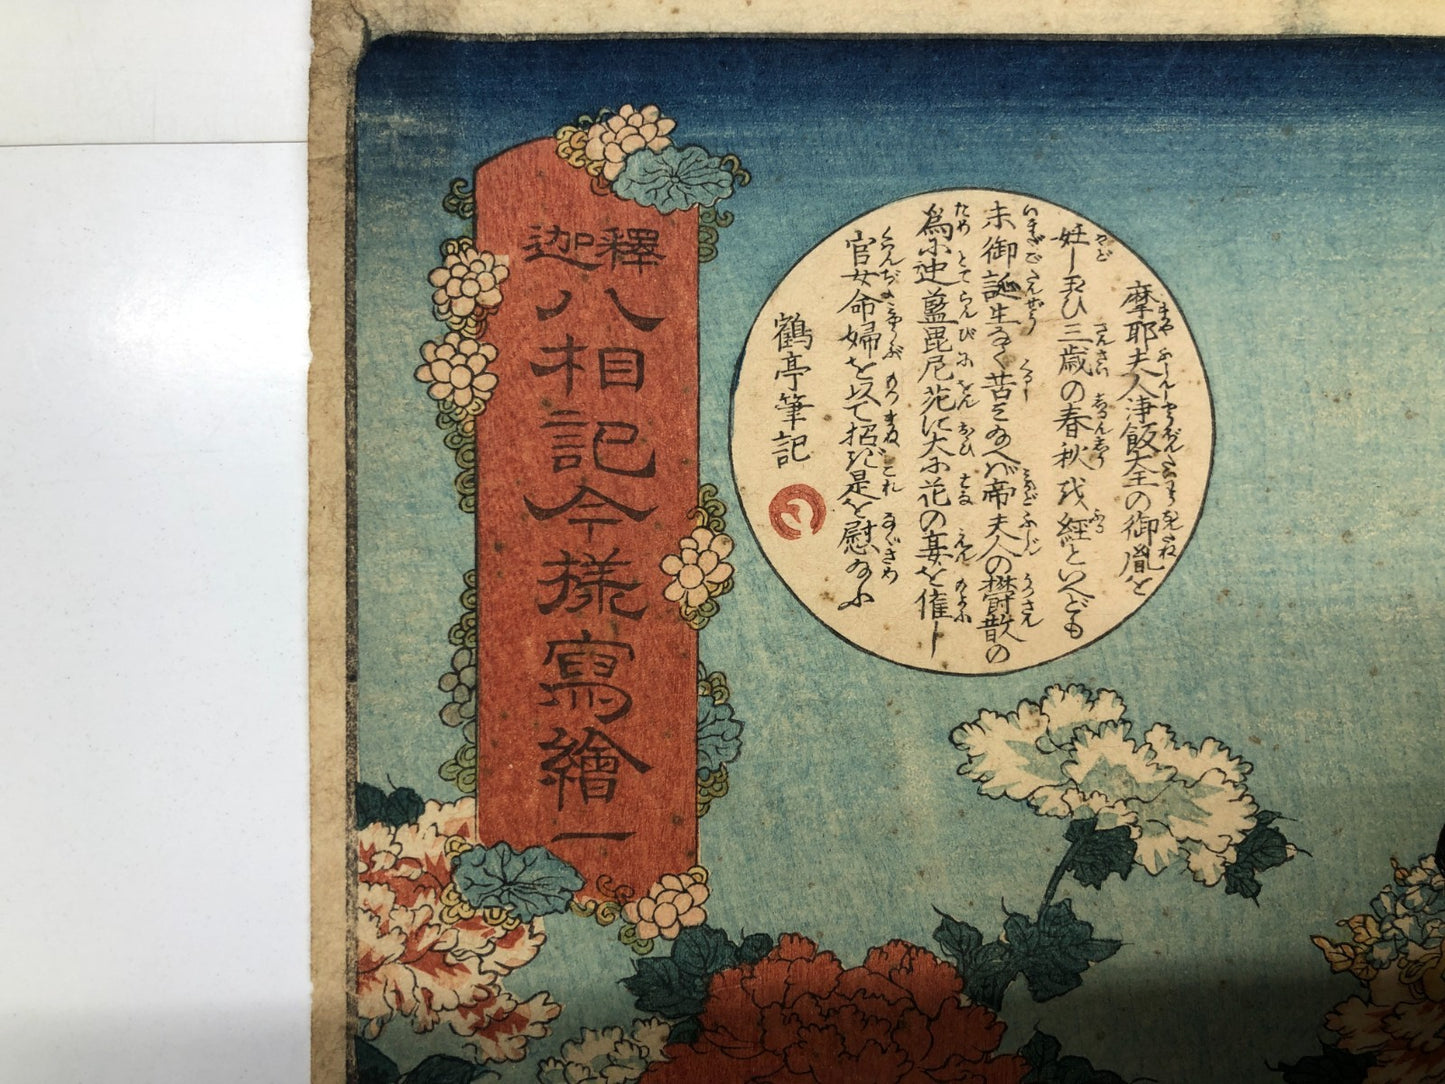 釋迦八相記今樣寫繪一
摩耶夫人津飯大王の御胤を
妊し玉ひ三歳の春秋を経るといへども
未御誕生なく苦とみ給へバ帝夫人の欝散の
為に迦藍毘尼苑に大に花の宴を催し
官女命婦を以て招ぎ是を慰め給ふ
鶴亭筆記